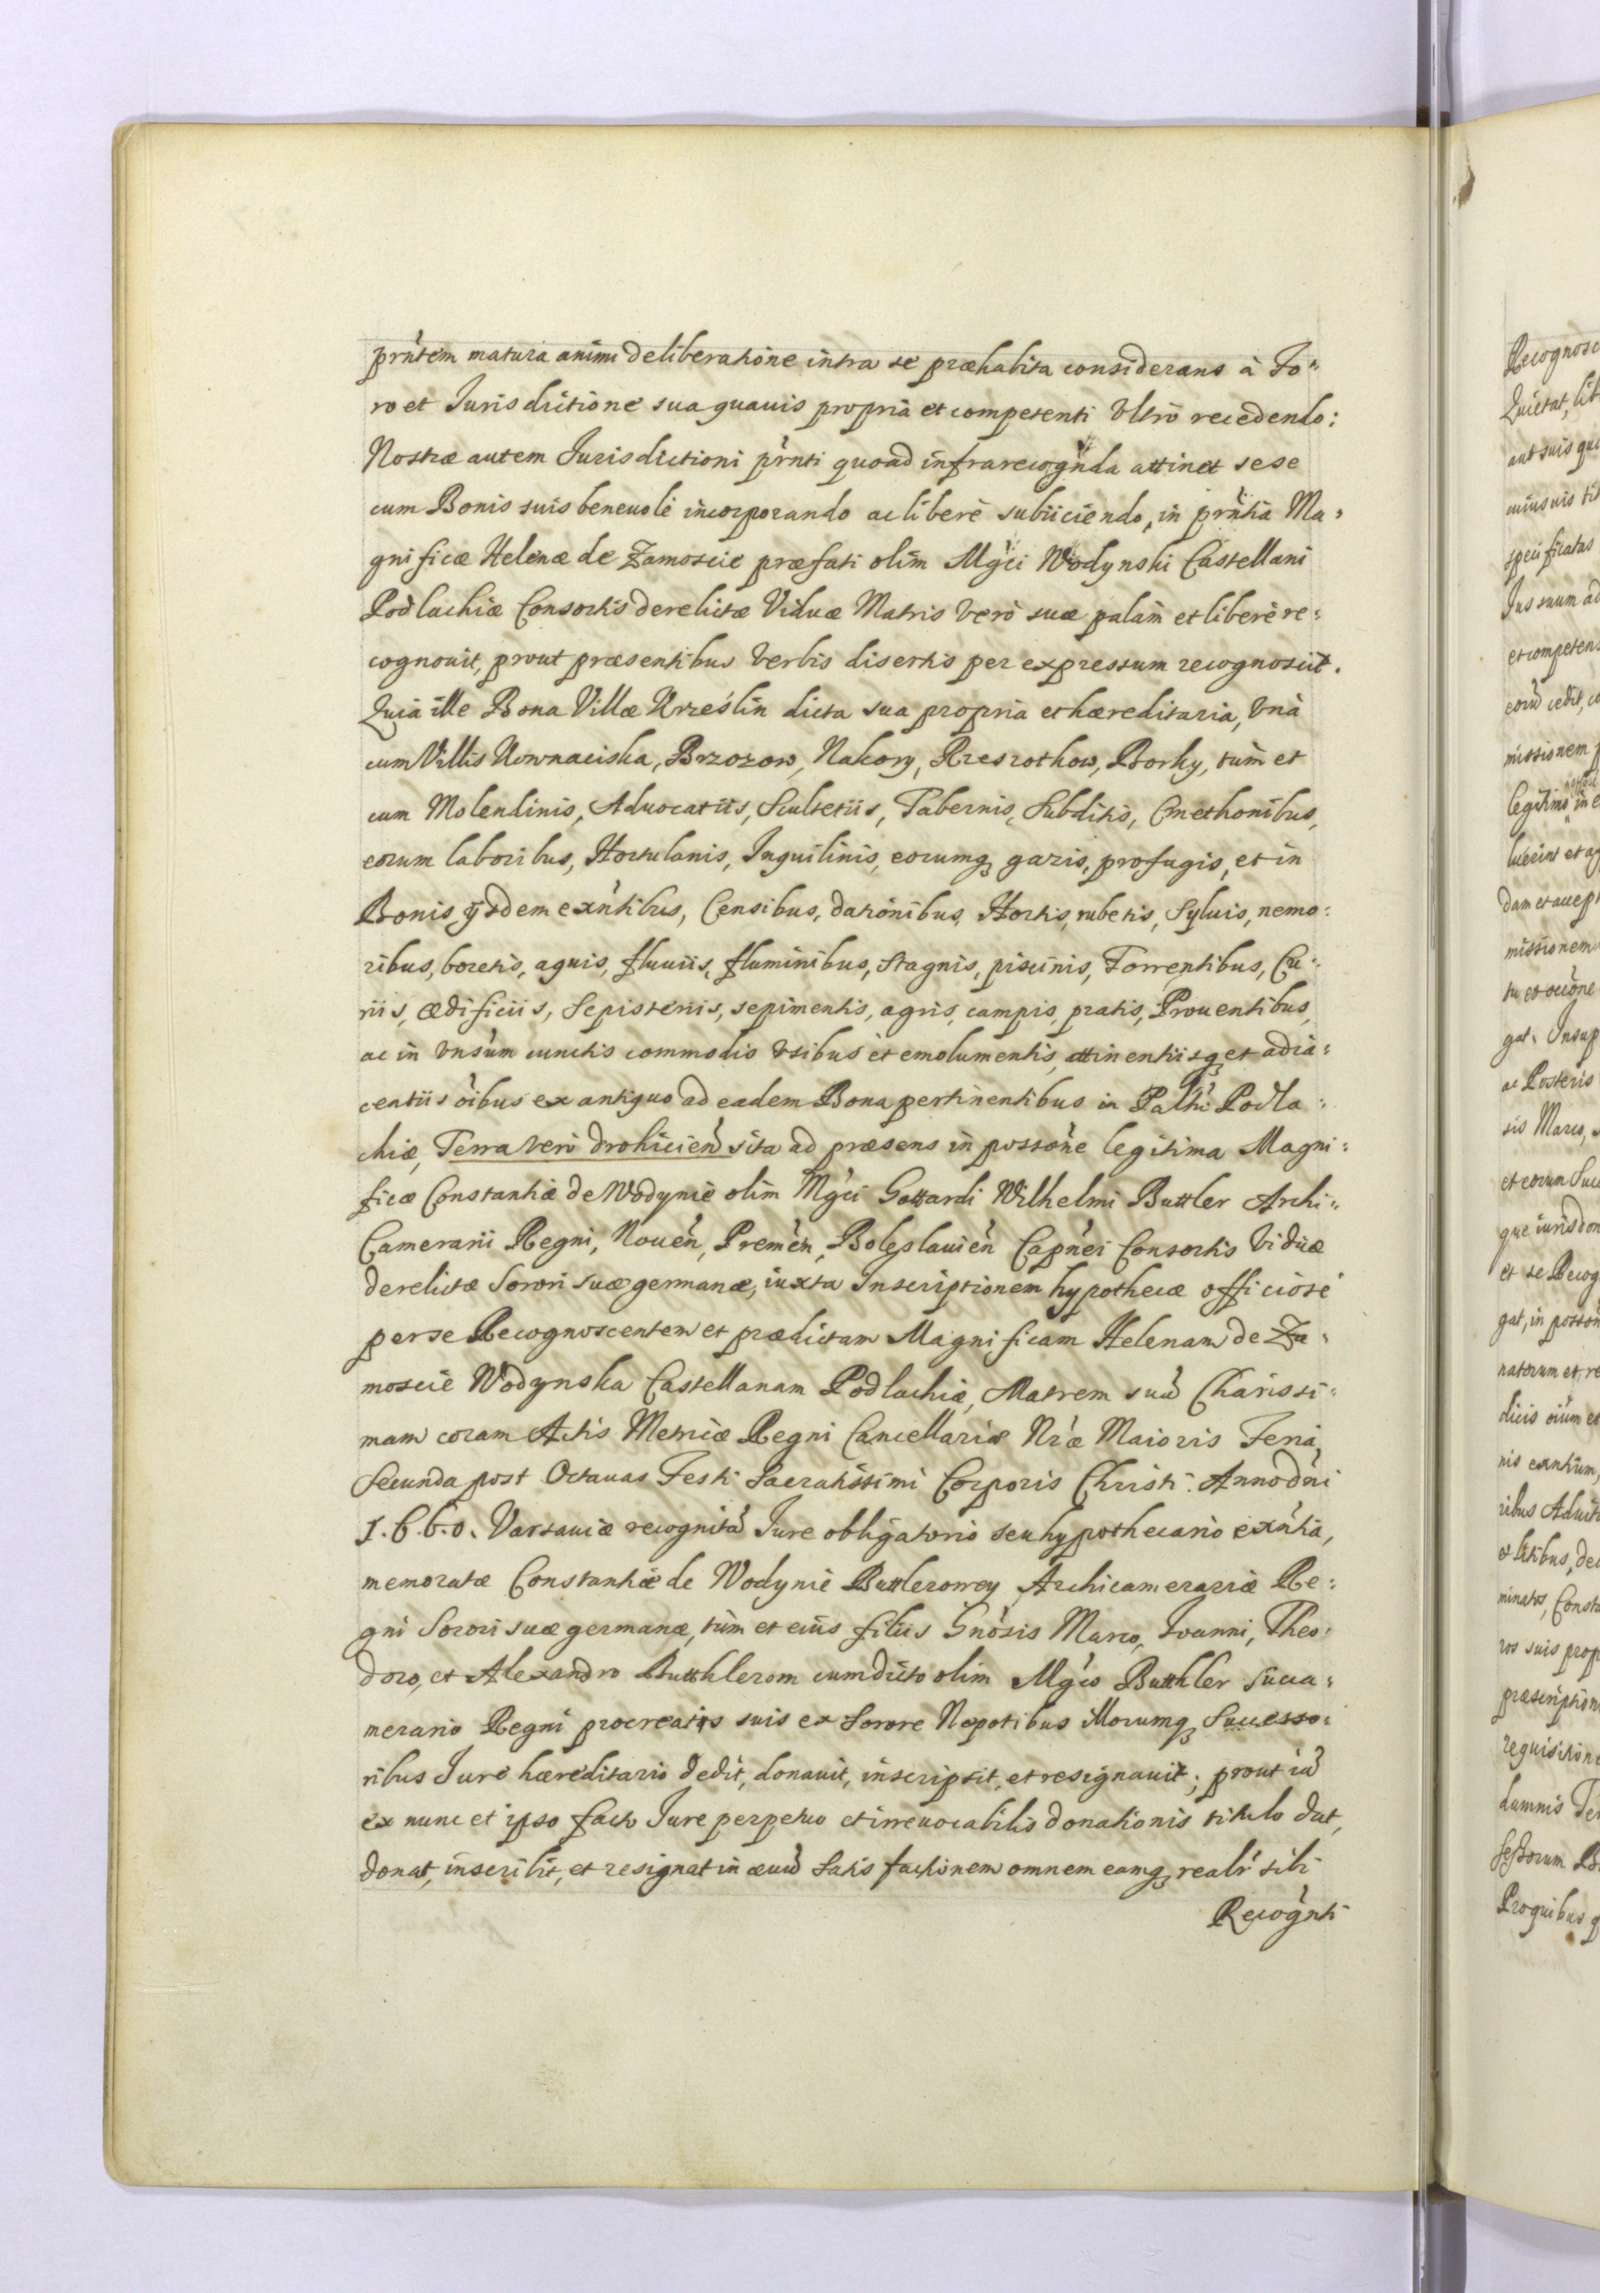 prńtem matura animi deliberatione intra se præhabita considerans à Fo=
ro et Jurisdictione sua quauis propria et competenti Vltrò recedendo:
Nostræ autem Jurisdictioni prńti quoad infrarecogńda attinet sese
cum Bonis suis beneuolè incorporando ac liberè subiiciendo, in prńtia Ma=
gnificæ Helenæ de Zamoscie præfati olim Mgći Wodynski Castellani
Podlachiæ Consortis derelictæ Viduæ Matris verò suæ palàm et liberè re=
cognouit, prout præsentibus verbis disertis per expressum recognoscit.
Quia ille Bona Villæ Krześlin dicta sua propria et hæreditaria, Vnà
cum Villis Nownaciska, Brzozow, Nakory, Rzeszothow, Borky, tùm et
cum Molendinis, Aduocatiis, Scultetiis, Tabernis, Subditis, Cmethonibus,
eorum laboribus, Hortulanis, Inquilinis, eorumq gazis, profugis, et in
Bonis ijsdem exńtibus, Censibus, dationibus, Hortis, rubetis, Syluis, nemo=
ribus, boretis, aquis, fluuiis, fluminibus, stagnis, piscinis, Torrentibus, Cu=
riis, ædificiis, Sepisteriis, sepimentis, agris, campis, pratis, Prouentibus,
ac in Vnsúm cunctis commodis Vsibus et emolumentis, attinentiisq et adia=
centiis óibus ex antiquo ad eadem Bona pertinentibus in Palttú Podla=
chiæ, Terra verò drohicień sita ad præsens in possońe legitima Magni=
ficæ Constantiæ de Wodynie olim Mgći Gottardi Wilhelmi Buttler Archi=
Camerarii Regni, Noueń, Premeń, Boleslauień Capńei Consortis Viduæ
derelictæ Sorori suæ germanæ, iuxta Inscriptionem hypothecæ officiosè
per se Recognoscentem et prædictam Magnificam Helenam de Za=
moscie Wodynska Castellanam Podlachiæ, Matrem suā Charissi=
mam coram Actis Metricæ Regni Cancellariæ Nrǽ Maioris Feria
Secunda post Octauas Festi Sacratissimi Corporis Christi. Anno dńi
1.6.6.0. Varsauiæ recognitā Jure obligatorio seu hypothecario exńtia,
memoratæ Constantiæ de Wodynie Buttlerowey Archicamerariæ Re=
gni Sorori suæ germanæ, tùm et eius filiis Gnósis Marco, Joanni, Theo=
doro, et Alexandro Butthlerom cum dicto olim Mgćo Butthler Succa=
merario Regni procreatis suis ex Sorore Nepotibus illorumq Successo=
ribus Jure hæreditario dedit, donauit, inscripsit, et resignauit; prout iā
ex nunc et ipso facto Jure perpetuo et irreuocabilis donationis titulo dat,
donat, inscribit, et resignat in æuū Satisfactionem omnem eamq realr sibi
Recogńti